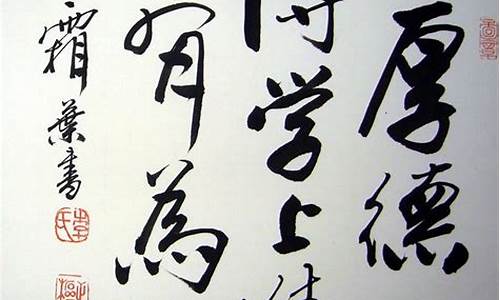 厚德
学上
有為
霜葉書